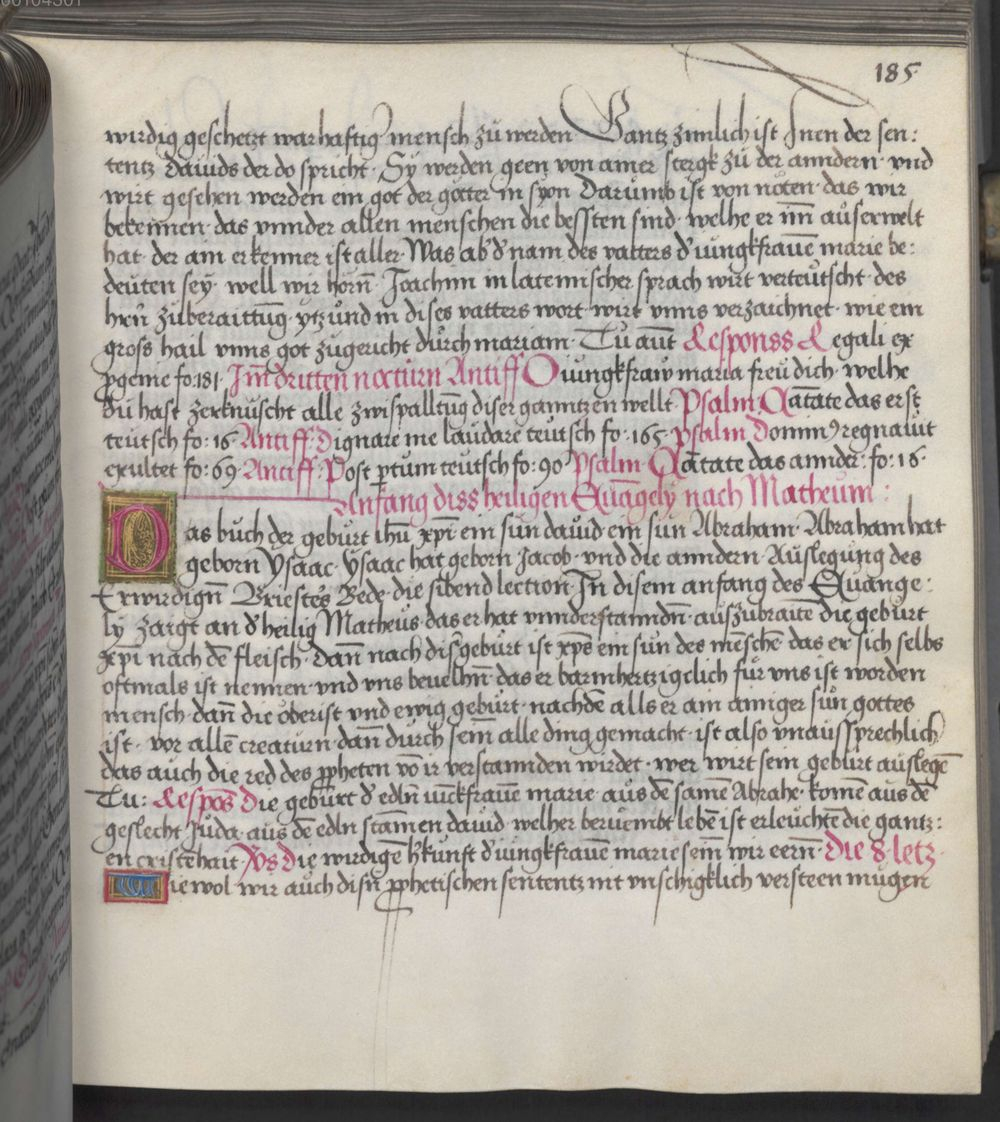 185
wirdig geschetzt warhaftig mensch zů werden Gantz zimlich ist Inen der sen:
tentz dauids der do spricht · Sy werden geen von ainer stergk zů der anndern · vnd
wirt gesehen werden ein got der götter in syon Darůmb ist von nöten · das wir
bekennen · das vnnder allen menschen die bessten sind · welhe er im aůserwelt
hat · der ain erkenner ist aller · Was ab d' nam des vatters d' iungkfrauē marie be:
deůten sey · well wir hörn̄ · Joachim in lateinischer sprach wirt verteůtscht · des
hrn̄ zůberaittūg · ytzůnd in dises vatters wort wirt vnns verzaichnet · wie ein
gross hail vnns got zůgericht důrch mariam · Tů aūt Responss Regali ex
ꝓgenie fo · 181 · Im̄ dritten noctůrn Antiff O iůngkfraw maria freů dich · welhe
dů hast zerknüscht alle zwispalltūg diser ganntzen wellt Psalm · Cātate das erst
teůtsch fo: 16 · Antiff: Dignare me laudare teůtsch fo: 165 · Psalm Dominꝰ regnauit
exultet fo: 69 · Antiff: Post ꝑtum teůtsch fo: 90 Psalm · Cātate das annder: fo: 16 ·
Anfang diss heiligen Euāgely nach Matheum:
Das bůch der gebůrt ihū xp̄i ein sůn dauid ein sůn Abraham · Abraham hat
geborn Ysaac · Ysaac hat geborn Jacob · vnd die anndern · Auslegůng des
Erwirdign̄ Briesters Bede · die sibend lection In disem anfang des Euange:
ly zaigt an d' heilig Matheůs · das er hat vnnderstanndn̄ · auszůbraitē die gebůrt
xp̄i nach dē fleisch · dan̄ nach dis' gebůrt ist xp̄s ein sůn des mēsche · das er sich selbs
oftmals ist nennen · vnd vns beuelhn̄ · das er barmhertzigclich für vns ist worden
mensch · dan̄ die öberist vnd ewig gebůrt · nachdē alls er ain ainiger sůn gottes
ist · vor allē creatůrn · dan̄ důrch sein̄ alle ding gemacht · ist also vnaussprechlich
das auch die red des ꝓpheten vō ir verstannden wirdet · wer wirt sein gebůrt auslegē
Tů: Respōs Die gebůrt d' edln̄ iůckfrauē marie · aůs dē samē Abrahe · komē aůs dē
geslecht Jůda · aůs dē edln stam̄en dauid · welher berůembt lebē ist erleůchtē die gantz:
en cristēhait · V̄s Die wirdigē h'kůnft d' iůngkfrauē marie sein̄ wir eern̄ · Die 8 letz ·
Wiewol wir aůch disn̄ ꝓphetischen sententz nit vnschigklich versteen mügen